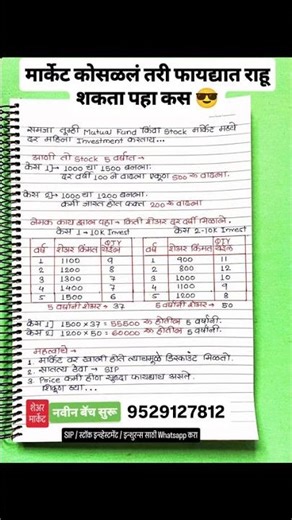 मार्केट कोसळलं तरी फायद्यात राहू
शकता पहा कस 😎
समजा तुम्ही Mutual Fund किंवा Stock मार्केट मध्ये
दर महिला Investment करताय...
आणी तो Stock 5 वर्षात -
केस 1] → 1000 चा 1500 बनला.
दर वर्षी 100 ने वाढला एकूण 500 रु वाढला.
केस 2] → 1000 चा 1200 बनला.
कमी जास्त होत फक्त 200 रु वाढला
नेमक काय झाल पहा - किती शेअर दर वर्षी मिळाले.
केस 1 → 10k Invest केस 2 - 10k Invest
वर्ष शेअर किंमत QTY येईल वर्ष शेअर किंमत QTY येईल
1 1100 9 1 900 11
2 1200 8 2 800 12
3 1300 7 3 1000 10
4 1400 7 4 1100 9
5 1500 6 5 1200 8
5 वर्षांनी शेअर → 37 5 वर्षांनी शेअर → 50
केस 1] 1500 × 37 = 55500 रु होतील 5 वर्षांनी.
केस 2] 1200 × 50 = 60000 रु होतील 5 वर्षांनी.
महत्वाचे →
1. मार्केट वर खाली होते त्यामुळे डिस्काउंट मिळतो.
2. सातत्य ठेवा → SIP
3. Price कमी होण सुद्धा फायद्याच असते.
शिकून घ्या...
शेअर मार्केट
नवीन बॅच सुरू 9529127812
SIP / स्टॉक इन्व्हेस्टमेंट / इन्शुरन्स साठी Whatsapp करा